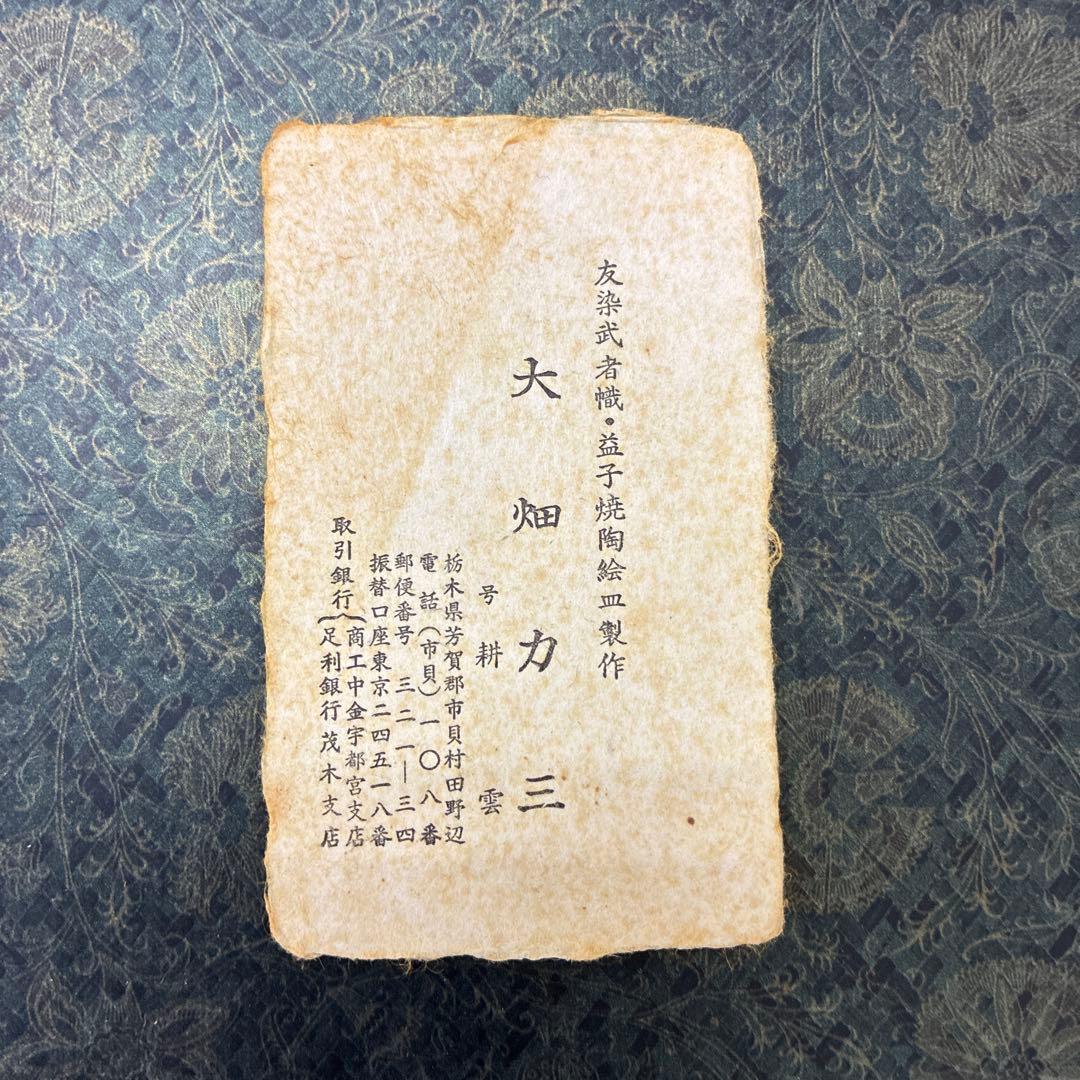 友染武者幟・益子焼陶絵皿製作
大畑力三
号 耕雲
栃木県芳賀郡市貝村田野辺
電話(市貝)一〇八番
郵便番号 三二一―三四
振替口座東京二四五一八番
取引銀行{商工中金宇都宮支店
足利銀行茂木支店